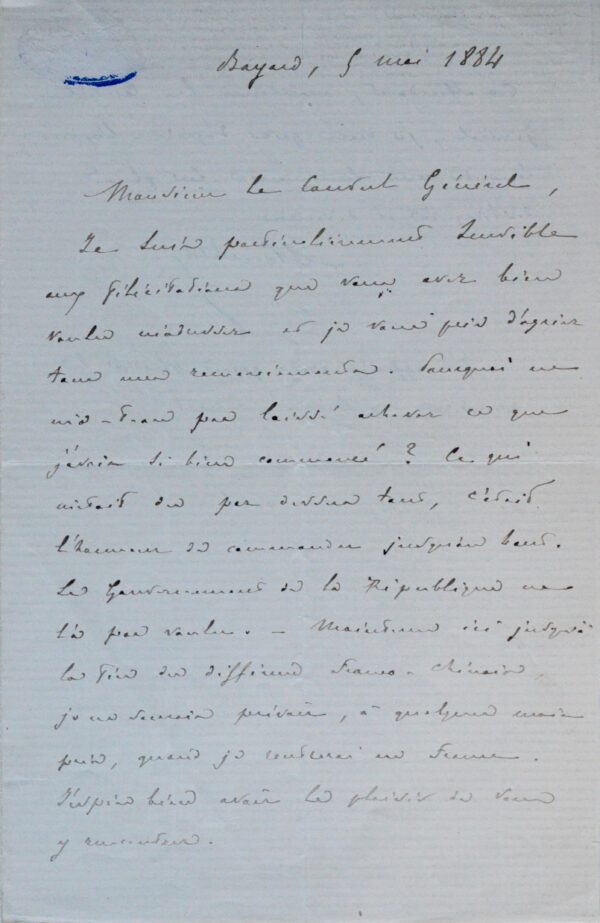 Bayard, 5 mai 1884
Monsieur le Consul Général,
Je suis particulièrement sensible
aux félicitations que vous avez bien
voulu m'adresser et je vous prie d'agréer
tous mes remerciements. Pourquoi ne
m'a-t-on pas laissé achever ce que
j'avais si bien commencé ? Ce qui
m'était dû par dessus tout, c'était
l'honneur de commander jusqu'au bout.
Le Gouvernement de la République ne
l'a pas voulu. – Maintenu ici jusqu'à
la fin du différend Franco-Chinois,
je ne saurais prévoir, à quelques mois
près, quand je rentrerai en France.
J'espère bien avoir le plaisir de vous
y rencontrer.